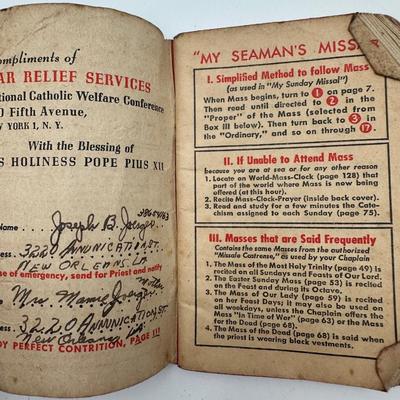 ompliments of
AR RELIEF SERVICES
tional Catholic Welfare Conference
0 Fifth Avenue,
EW YORK 1, N. Y.
With the Blessing of
S HOLINESS POPE PIUS XII
Name Joseph B.
ess 3220 ANNUNICATION ST.
NEW ORLEANS LA
se of emergency, send for Priest and notify
Mrs. Mamie Mother
ess 3220 ANNUNICATION ST
New Orleans La.
DY PERFECT CONTRITION, PAGE
"MY SEAMAN'S MISSA
I. Simplified Method to follow Mass
(as used in "My Sunday Missal")
When Mass begins, turn to 1 on page 7.
Then read until directed to 2 in the
"Proper" of the Mass (selected from
Box III below). Then turn back to 3 in
the "Ordinary," and so on through 17.
II. If Unable to Attend Mass
because you are at sea or for any other reason
1. Locate on World-Mass-Clock (page 128) that
part of the world where Mass is now being
offered (at this hour).
2. Recite Mass-Clock-Prayer (inside back cover).
3. Read and study for a few minutes the Cate-
chism assigned to each Sunday (page 75).
III. Masses that are Said Frequently
Contains the same Masses from the authorized
"Missale Castrense," as used by your Chaplain
1. The Mass of the Most Holy Trinity (page 49) is
recited on all Sundays and Feasts of Our Lord.
2. The Easter Sunday Mass (page 53) is recited
on the Feast and during its Octave.
3. The Mass of Our Lady (page 59) is recited
on her Feast Days; it may also be used on
all weekdays, unless the Chaplain offers the
Mass "In Time of War" (page 63) or the Mass
for the Dead (page 68).
4. The Mass of the Dead (page 68) is said when
the priest is wearing black vestments.